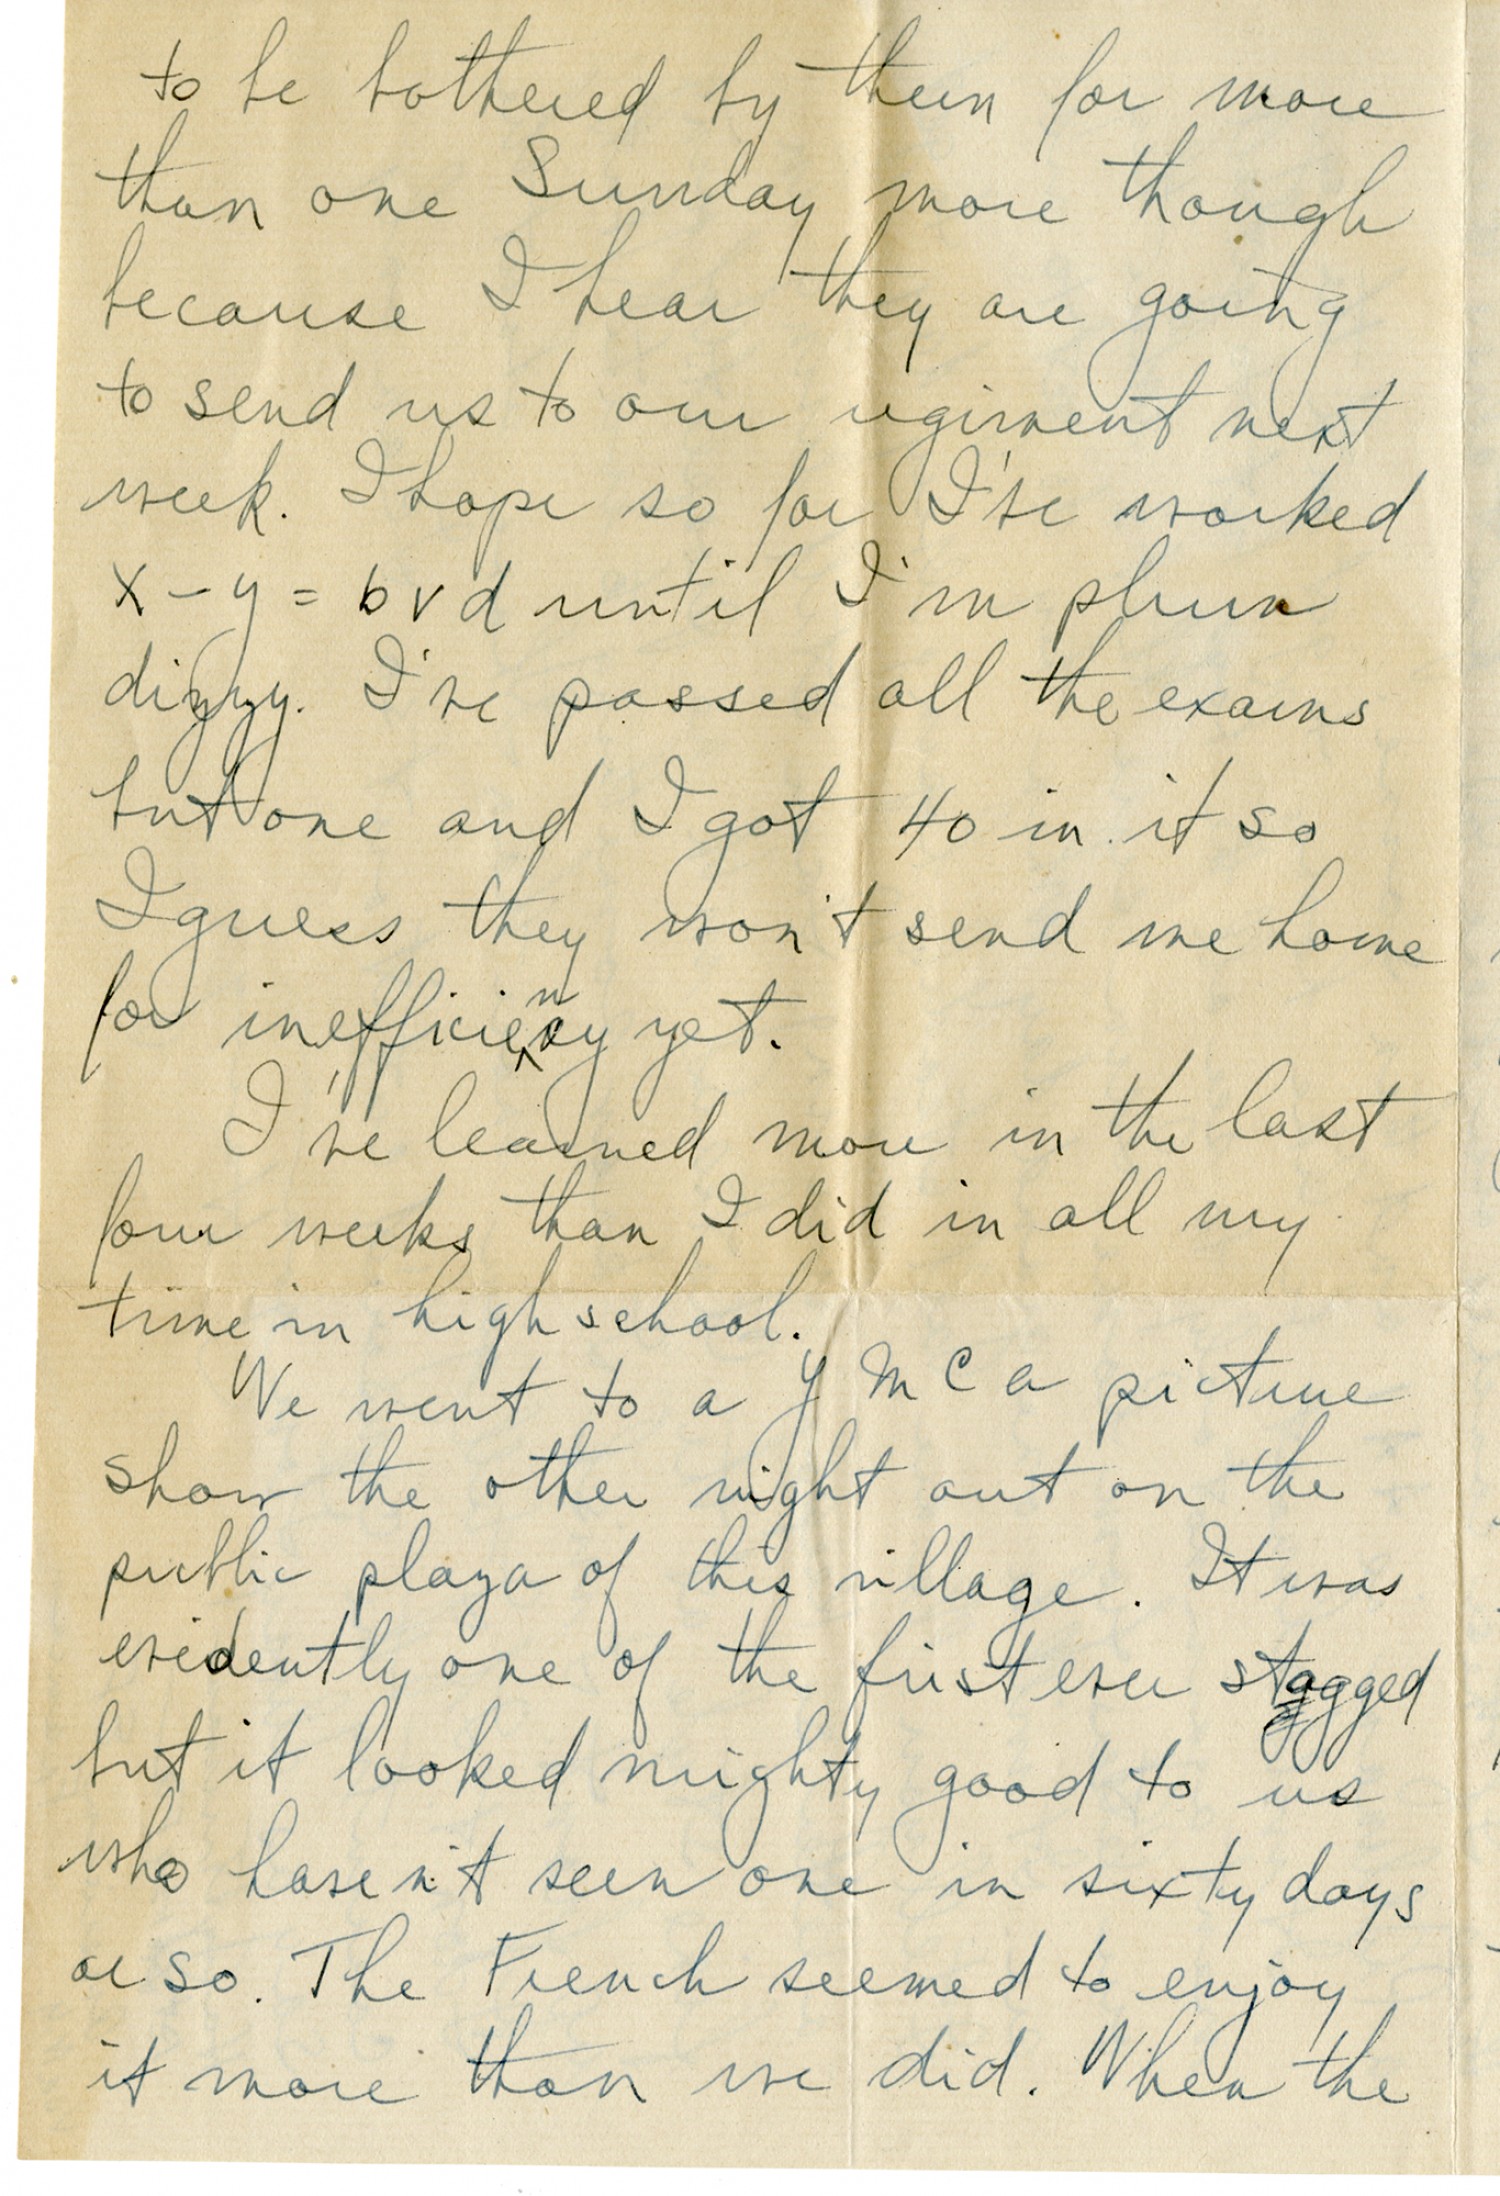 to be bothered by them for more
than one Sunday more though
because I hear they are going
to send us to our regiment next
week. I hope so for I've worked
x - y = bvd until I'm plum
dizzy. I've passed all the exams
but one and I got 40 in it so
I guess they won't send me home
for inefficiency yet.
I've learned more in the last
four weeks than I did in all my
time in high school.
We went to a Y M C A picture
show the other night out on the
public plaza of this village. It was
evidently one of the first ever stagged
but it looked mighty good to us
who haven't seen one in sixty days
or so. The French seemed to enjoy
it more than we did. When the